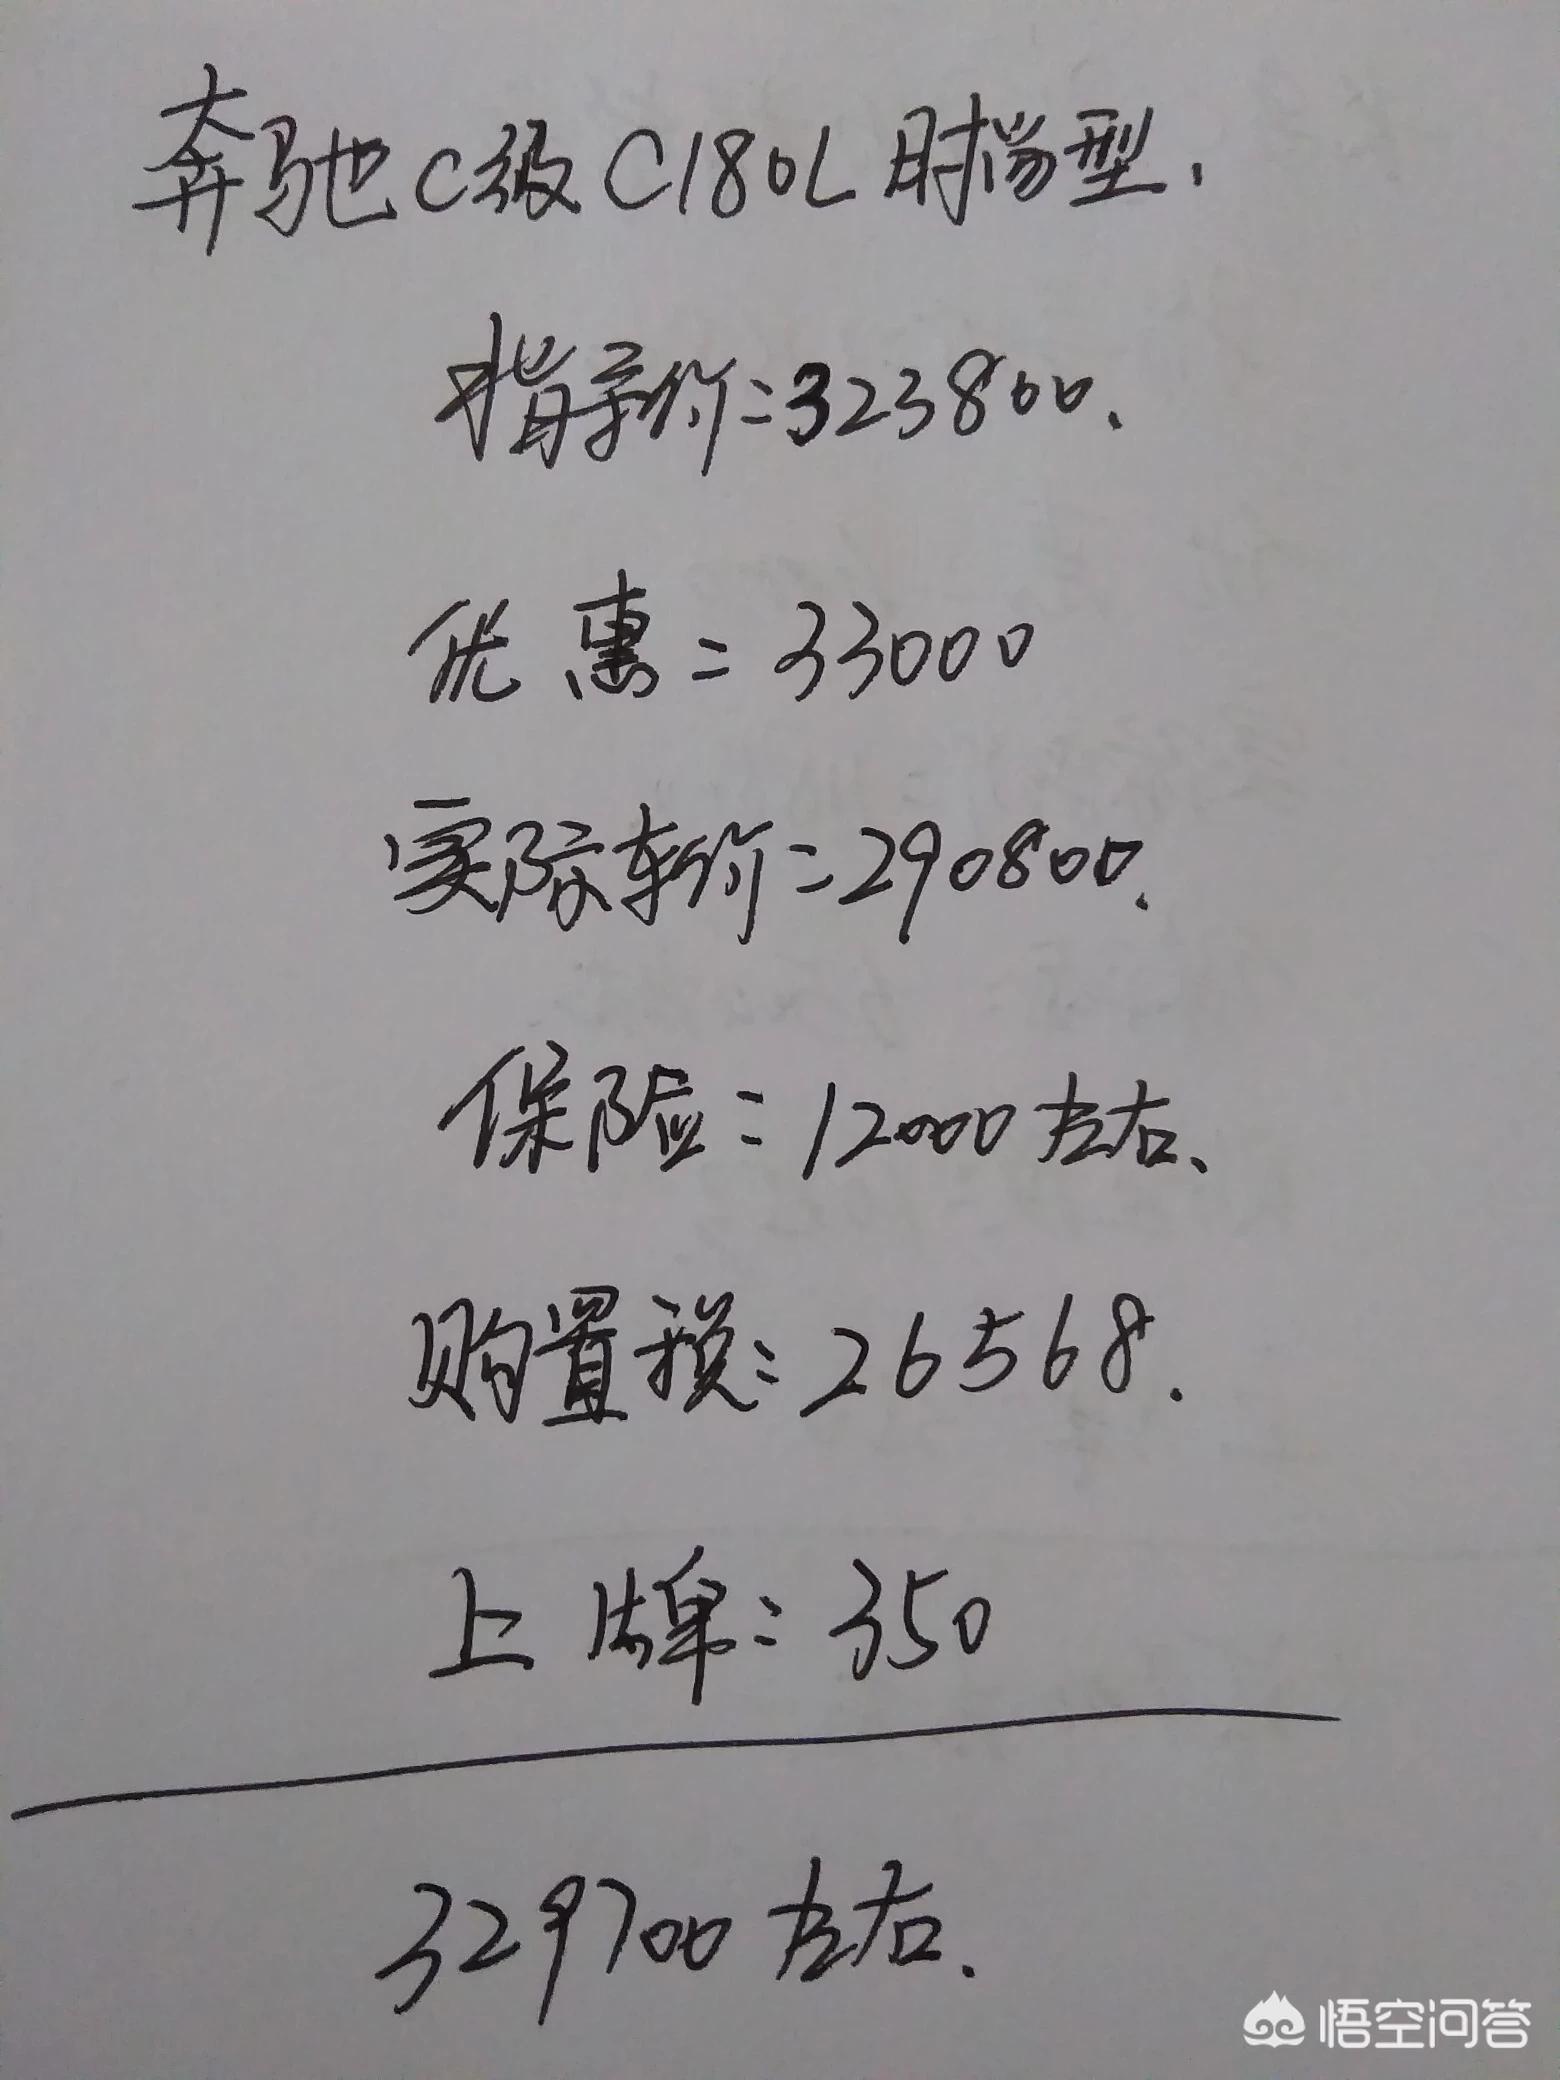 奔驰C级C180L时尚型.
指导价=323800.
优惠=33000
实际车价=290800.
保险=12000左右、
购置税=26568.
上牌=350
329700左右.
悟空问答